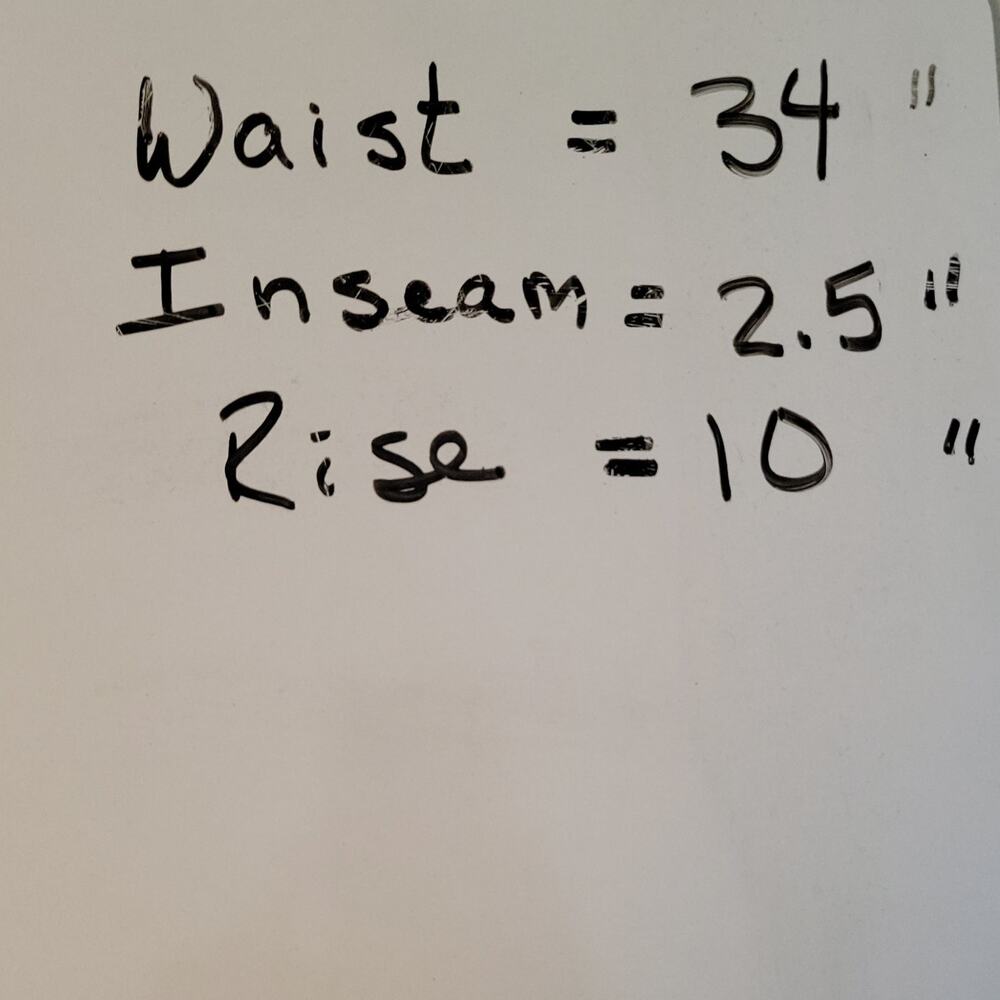 Waist = 34 "
Inseam = 2.5 "
Rise = 10 "